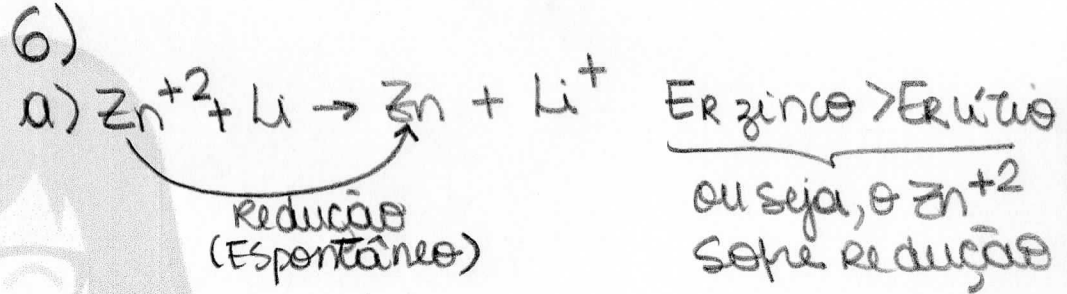 6)
a) Zn⁺² + Li → Zn + Li⁺ ER zinco > ER lítio
Redução
(Espontâneo)
ou seja, o Zn⁺²
sofre redução